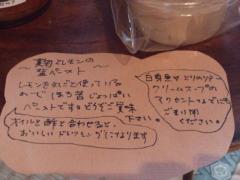 ~麹とレモンの
塩ペースト
レモンを丸ごと使っている
ので ほろ苦じょっぱい
ペーストです♪どうぞご賞味
下さい。
オイルと酢と合わせると、
おいしいドレッシングにもなります
白身魚や とりのソテー
クリームスープの
アクセントなどにも
ご利用
ください。